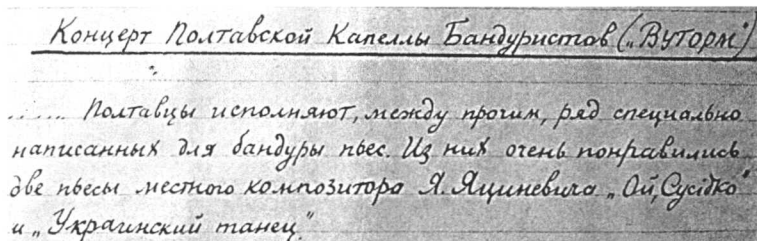 Концерт Полтавской Капеллы Бандуристов („Вуторм“)
...... Полтавцы исполняют, между прочим, ряд специально
написанных для бандуры пьес. Из них очень понравились
две пьесы местного композитора Я. Яциневича „Ой, Сусідко“
и „Украинский танец“.